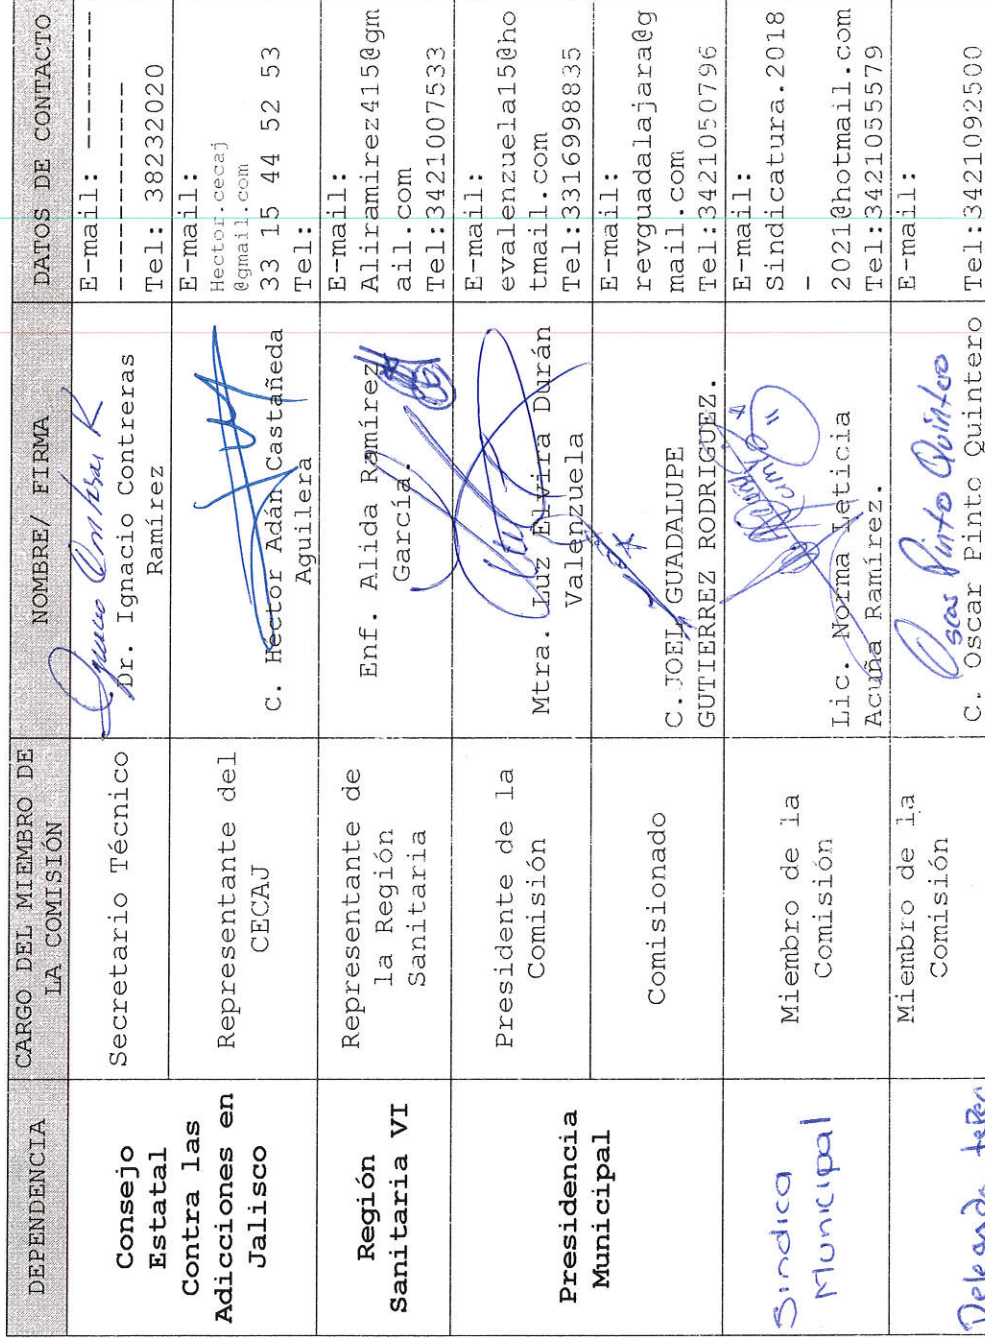 DEPENDENCIA
CARGO DEL MIEMBRO DE
LA COMISIÓN
NOMBRE/ FIRMA
DATOS DE CONTACTO
Consejo
Estatal
Contra las
Adicciones en
Jalisco
Secretario Técnico
Dr. Ignacio Contreras
Ramírez
E-mail: ---------
-------------
Tel: 3823202​0
Representante del
CECAJ
C. Héctor Adán Castañeda
Aguilera
E-mail:
Hector.cecaj
@gmail.com
33 15 44 52 53
Tel:
Región
Sanitaria VI
Representante de
la Región
Sanitaria
Enf. Alida Ramírez
García.
E-mail:
Aliramirez415@gm
ail.com
Tel:3421007533
Presidencia
Municipal
Presidente de la
Comisión
Mtra. Luz Elvira Durán
Valenzuela
E-mail:
evalenzuela15@ho
tmail.com
Tel:3316998835
Comisionado
C.JOEL GUADALUPE
GUTIERREZ RODRIGUEZ.
revguadalajara@g
mail.com
Tel:3421050796
Sindica
Municipal
Miembro de la
Comisión
Lic. Norma Leticia
Acuña Ramírez.
E-mail:
Sindicatura.2018
-
2021@hotmail.com
Tel:3421055579
Miembro de la
Comisión
Oscar Pinto Quintero
C. Oscar Pinto Quintero
E-mail:
Tel:3421092500